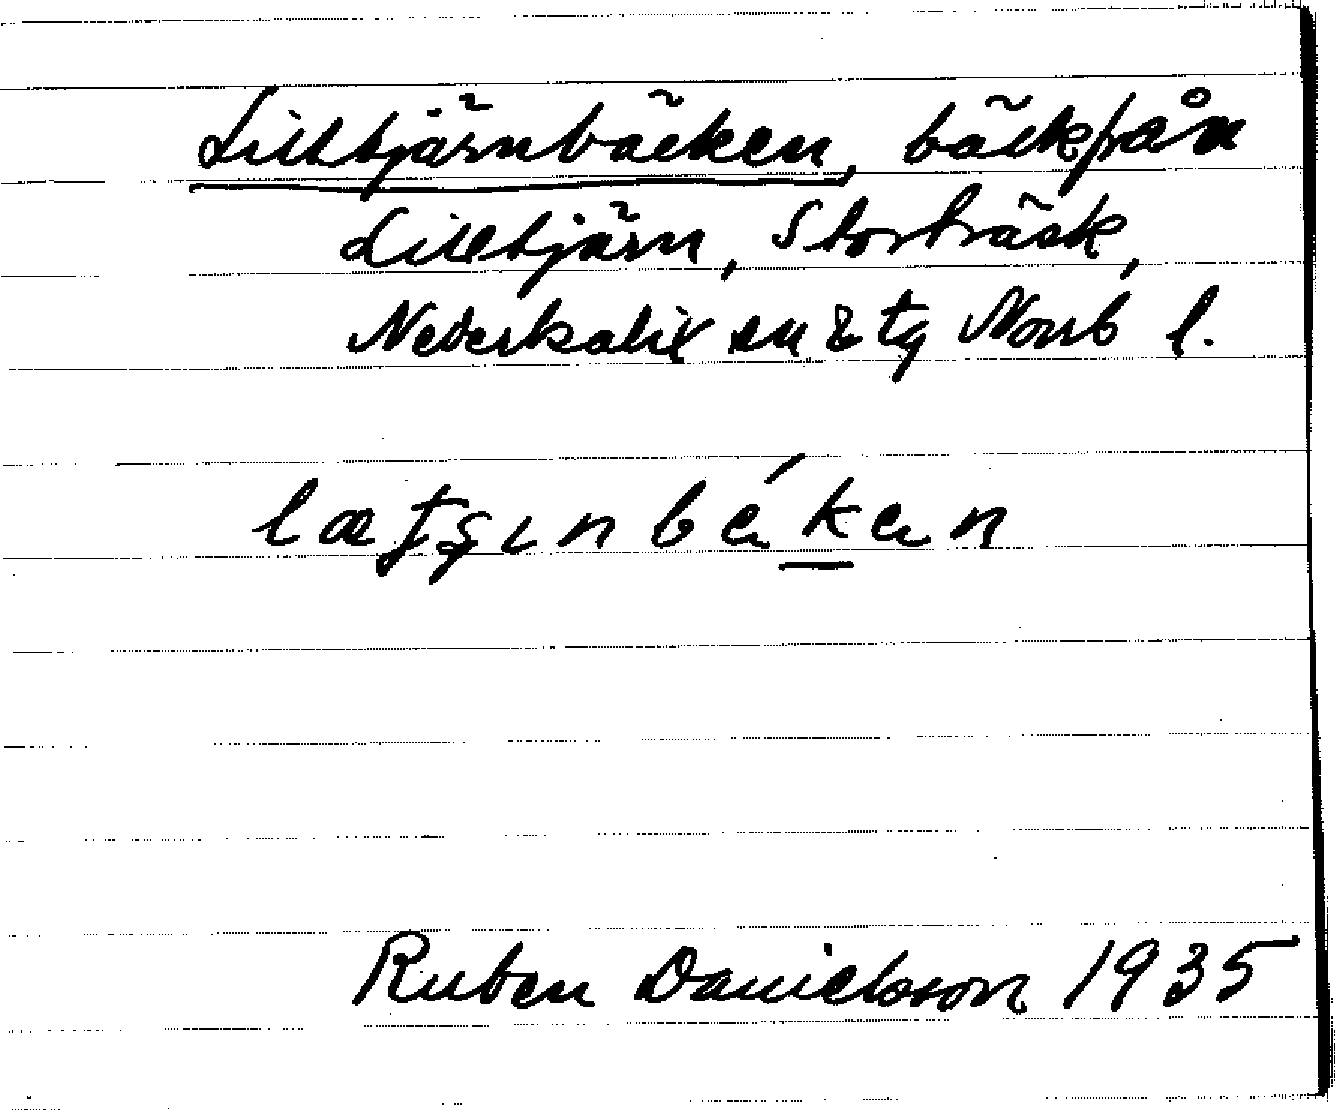 Lilltjärnbäcken, bäck från
Lilltjärn, Storträsk,
Nederkalix sn & tg Norrb l.
Ruben Danielsson 1935